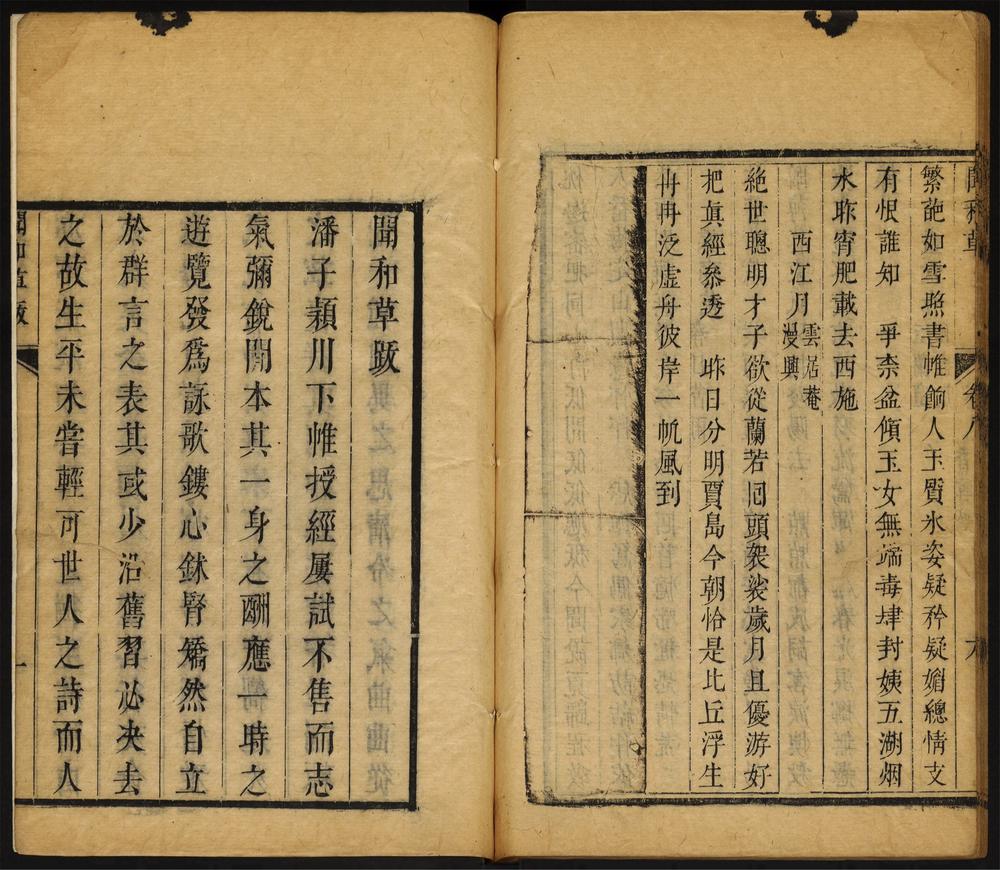 聞和草
卷八
六
繁葩如雪照書帷餉人玉質氷姿疑矜疑媚總情支
有恨誰知　爭柰盆傾玉女無端毒肆封姨五湖烟
水昨宵肥載去西施
西江月雲居菴漫興
絶世聰明才子欲從蘭若囘頭袈裟歲月且優游好
把眞經叅透　昨日分明賈島今朝恰是比丘浮生
冉冉泛虛舟彼岸一帆風到
聞和草跋
潘子頴川下帷授經屢試不售而志
氣彌銳閒本其一身之酬應一時之
遊覽發爲詠歌鏤心鉥腎矯然自立
於群言之表其或少沿舊習必决去
之故生平未嘗輕可世人之詩而人
聞和草跋
一